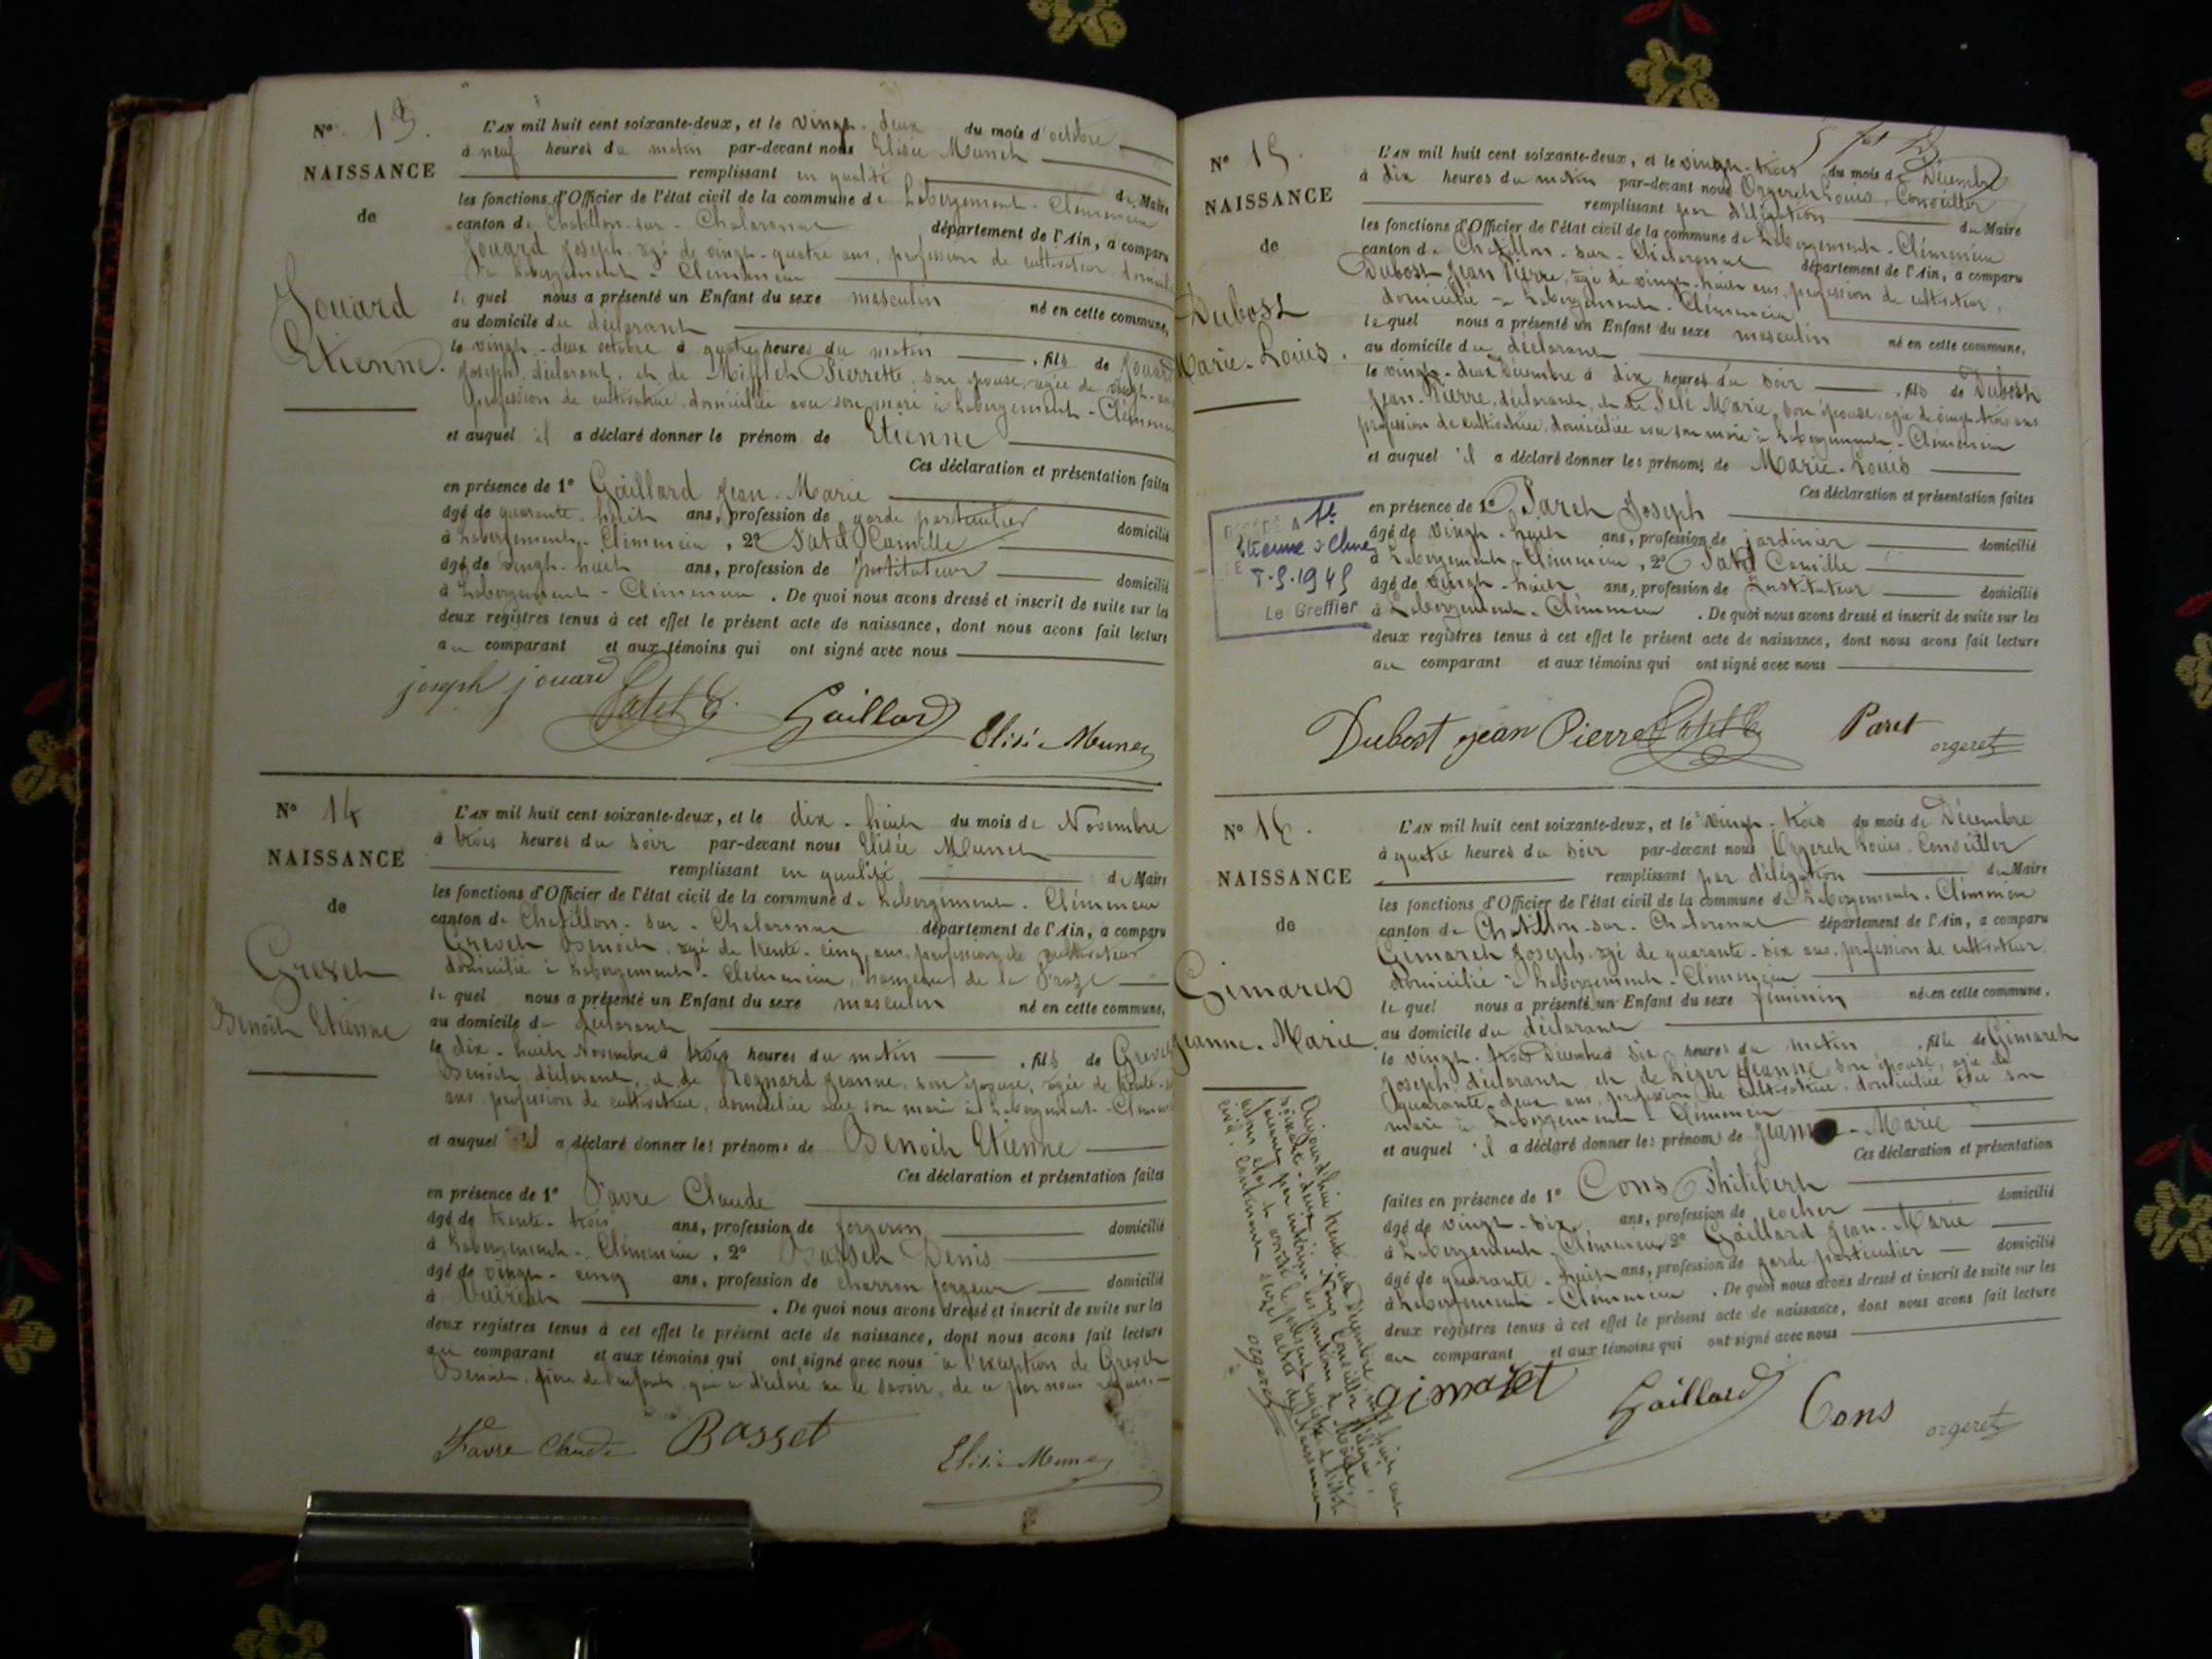 N° 13.
NAISSANCE
de
Jouard
Etienne.
L'AN mil huit cent soixante-deux, et le vingt-deux du mois d'octobre
à neuf heures du matin par-devant nous Elisée Munet
remplissant en qualité de Maire
les fonctions d'Officier de l'état civil de la commune de Labergement-Clémencia
canton de Chatillon-sur-Chalaronne département de l'Ain, a comparu
Jouard Joseph, agé de vingt-quatre ans, profession de cultivateur, domicilié
à Labergement-Clémencia
lequel nous a présenté un Enfant du sexe masculin né en cette commune,
au domicile du déclarant
le vingt-deux octobre à quatre heures du matin, fils de Jouard
Joseph, déclarant, et de Pierrette, son épouse, agée de vingt
profession de cultivatrice, domiciliée avec son mari à Labergement-Clémencia
et auquel il a déclaré donner le prénom de Etienne
Ces déclaration et présentation faites
en présence de 1° Gaillard Jean-Marie
âgé de quarante-huit ans, profession de garde particulier domicilié
à Labergement-Clémencia, 2° Patel Camille
âgé de vingt-huit ans, profession de Instituteur domicilié
à Labergement-Clémencia. De quoi nous avons dressé et inscrit de suite sur les
deux registres tenus à cet effet le présent acte de naissance, dont nous avons fait lecture
au comparant et aux témoins qui ont signé avec nous
joseph jouard Patel C. Gaillard Elisée Munet
N° 14
NAISSANCE
de
Grevet
Benoit Etienne
L'AN mil huit cent soixante-deux, et le dix-huit du mois de Novembre
à trois heures du soir par-devant nous Elisée Munet
remplissant en qualité de Maire
les fonctions d'Officier de l'état civil de la commune de Labergement-Clémencia
canton de Chatillon-sur-Chalaronne département de l'Ain, a comparu
Grevet Benoit, agé de trente-cinq ans, profession de cultivateur
domicilié à Labergement-Clémencia, hameau de la
lequel nous a présenté un Enfant du sexe masculin né en cette commune,
au domicile du déclarant
le dix-huit Novembre à trois heures du matin, fils de Grevet
Benoit, déclarant, et de Rognard Jeanne, son épouse, agée de trente
ans, profession de cultivatrice, domiciliée avec son mari à Labergement-Clémencia
et auquel il a déclaré donner les prénoms de Benoit Etienne
Ces déclaration et présentation faites
en présence de 1° Favre Claude
âgé de trente-trois ans, profession de forgeron domicilié
à Labergement-Clémencia, 2° Basset Denis
âgé de vingt-cinq ans, profession de charron forgeur domicilié
à De quoi nous avons dressé et inscrit de suite sur les
deux registres tenus à cet effet le présent acte de naissance, dont nous avons fait lecture
au comparant et aux témoins qui ont signé avec nous à l'exception de Grevet
Benoit, père de l'enfant, qui a déclaré ne le savoir, de ce par nous requis.
Favre Claude Basset Elisée Munet
N° 15.
NAISSANCE
de
Dubost
Marie-Louis.
L'AN mil huit cent soixante-deux, et le vingt-trois du mois de Décembre
à dix heures du matin par-devant nous Orgeret Louis, Conseiller
remplissant par délégation du Maire
les fonctions d'Officier de l'état civil de la commune de Labergement-Clémencia
canton de Chatillon-sur-Chalaronne département de l'Ain, a comparu
Dubost Jean Pierre, agé de vingt-huit ans, profession de cultivateur,
domicilié à Labergement-Clémencia
lequel nous a présenté un Enfant du sexe masculin né en cette commune,
au domicile du déclarant
le vingt-deux Décembre à dix heures du soir, fils de Dubost
Jean-Pierre, déclarant, et de Marie, son épouse, agée de vingt-trois ans
profession de cultivatrice, domiciliée avec son mari à Labergement-Clémencia
et auquel il a déclaré donner les prénoms de Marie-Louis
Ces déclaration et présentation faites
en présence de 1° Paret Joseph
âgé de vingt-huit ans, profession de jardinier domicilié
à Labergement-Clémencia, 2° Patel Camille
âgé de vingt-huit ans, profession de Instituteur domicilié
à Labergement-Clémencia. De quoi nous avons dressé et inscrit de suite sur les
deux registres tenus à cet effet le présent acte de naissance, dont nous avons fait lecture
au comparant et aux témoins qui ont signé avec nous
DÉCÉDÉ A St
Etienne s Chne
LE 7-9-1945
Le Greffier
Dubost jean Pierre Patel C. Paret orgeret
N° 16.
NAISSANCE
de
Gimaret
Jeanne-Marie
L'AN mil huit cent soixante-deux, et le vingt-trois du mois de Décembre
à quatre heures du soir par-devant nous Orgeret Louis, Conseiller
remplissant par délégation du Maire
les fonctions d'Officier de l'état civil de la commune de Labergement-Clémencia
canton de Chatillon-sur-Chalaronne département de l'Ain, a comparu
Gimaret Joseph, agé de quarante-six ans, profession de cultivateur
domicilié à Labergement-Clémencia
lequel nous a présenté un Enfant du sexe féminin née en cette commune,
au domicile du déclarant
le vingt-trois Décembre à six heures du matin, fille de Gimaret
Joseph, déclarant, et de Léger Jeanne, son épouse, agée de
quarante-deux ans, profession de cultivatrice, domiciliée avec son
mari à Labergement-Clémencia
et auquel il a déclaré donner les prénoms de Jeanne-Marie
Ces déclaration et présentation
faites en présence de 1° Cons Philibert
âgé de vingt-six ans, profession de cocher domicilié
à Labergement-Clémencia 2° Gaillard Jean-Marie
âgé de quarante-huit ans, profession de garde particulier domicilié
à Labergement-Clémencia. De quoi nous avons dressé et inscrit de suite sur les
deux registres tenus à cet effet le présent acte de naissance, dont nous avons fait lecture
au comparant et aux témoins qui ont signé avec nous
gimaret Gaillard Cons orgeret
Aujourd'hui trente-un Décembre mil huit cent
soixante-deux, Nous Conseiller délégué,
par intérim les fonctions de Maire,
avons clos et arrêté le présent registre de l'état
civil, contenant seize actes de Naissance
orgeret